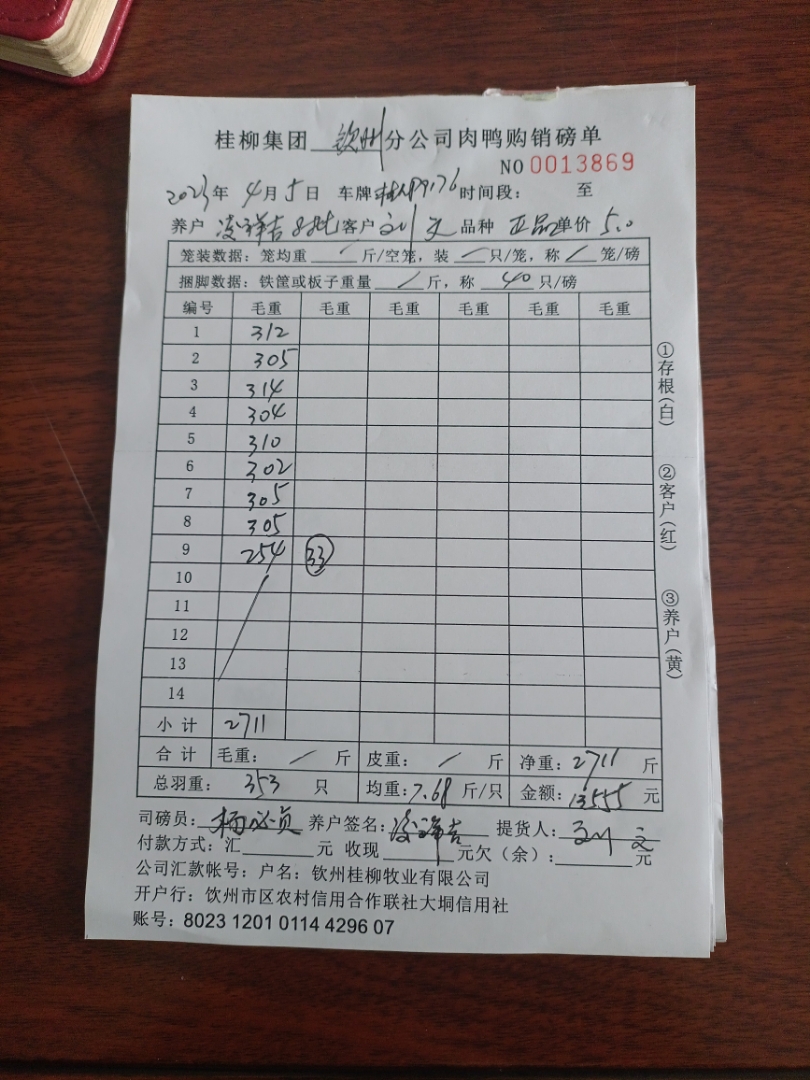 桂柳集团 钦州 分公司肉鸭购销磅单
NO 0013869
2023年 4月5日 车牌 99176 时间段: 至
养户 凌祥吉 客户 刘 品种 正品 单价 5.0
笼装数据: 笼均重 / 斤/空笼，装 / 只/笼，称 / 笼/磅
捆脚数据: 铁筐或板子重量 / 斤，称 40 只/磅
编号 毛重 毛重 毛重 毛重 毛重 毛重
1 312
2 305
3 314
4 304
5 310
6 302
7 305
8 305
9 254 33
10
11
12
13
14
小计 2711
合计 毛重: / 斤 皮重: / 斤 净重: 2711 斤
总羽重: 353 只 均重: 7.68 斤/只 金额: 13555 元
司磅员: 养户签名: 凌祥吉 提货人: 刘
付款方式: 汇 元 收现 元欠（余）: 元
公司汇款帐号: 户名: 钦州桂柳牧业有限公司
开户行: 钦州市区农村信用合作联社大垌信用社
账号: 8023 1201 0114 4296 07
①存根（白）
②客户（红）
③养户（黄）